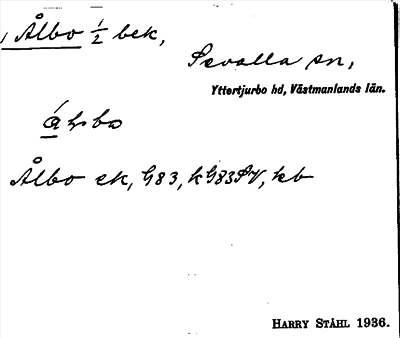 Ålbo ½ bek,
Sevalla sn,
Yttertjurbo hd, Västmanlands län.
Ålbo ek, G83, kG83SV, kb
HARRY STÅHL 1936.